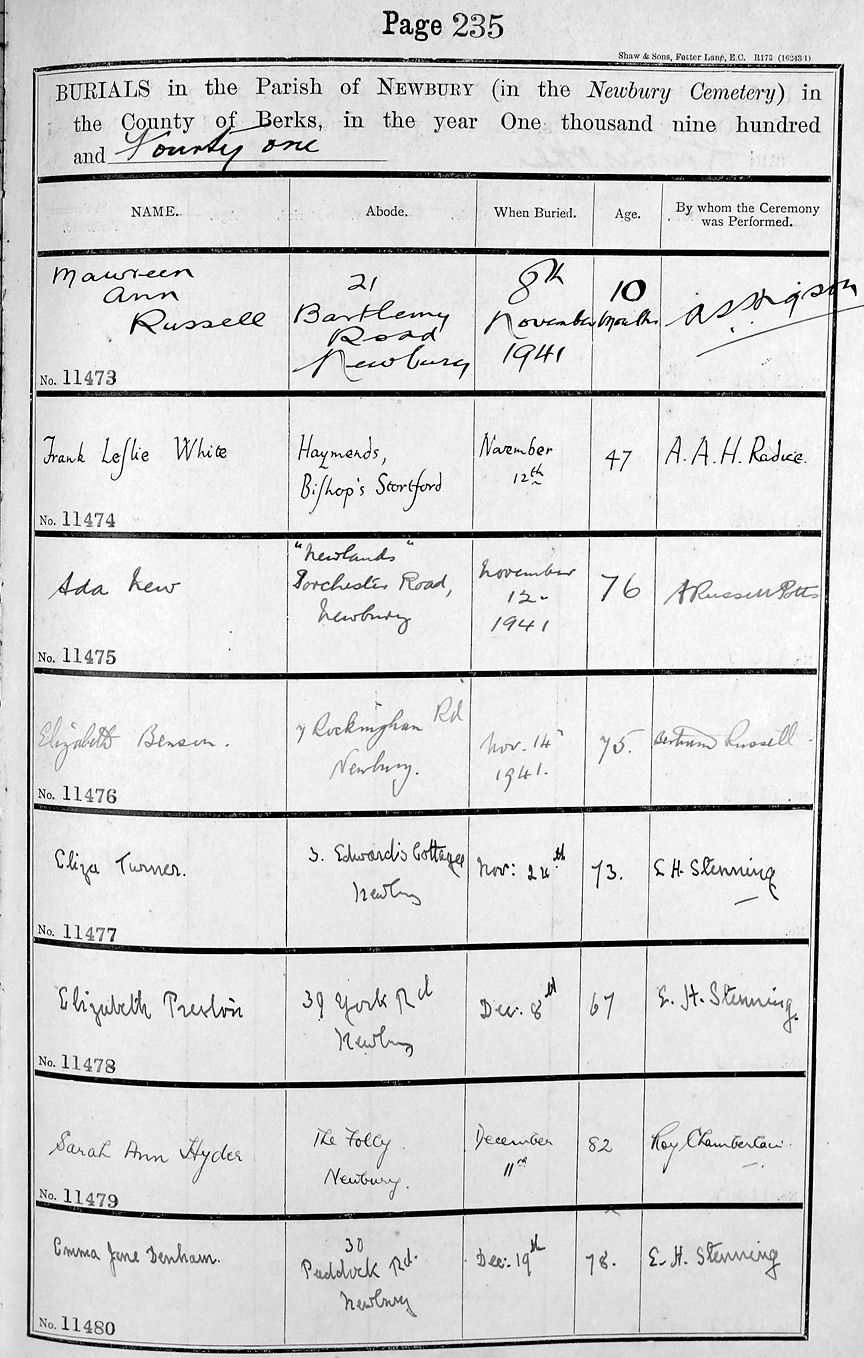 Page 235
Shaw & Sons, Fetter Lane, E.C. R173 (162431)
BURIALS in the Parish of NEWBURY (in the Newbury Cemetery) in
the County of Berks, in the year One thousand nine hundred
and Fourty one
NAME.
Abode.
When Buried.
Age.
By whom the Ceremony
was Performed.
Maureen
Ann
Russell
No. 11473
21
Bartlemy
Road
Newbury
8th
November
1941
10
Months
Frank Leslie White
No. 11474
Haymends,
Bishop's Stortford
November
12th
47
A. A. H. Radice.
Ada New
No. 11475
"Newlands"
Porchester Road,
Newbury
November
12
1941
76
A Russell Potts
Elizabeth Benson.
No. 11476
7 Rockingham Rd
Newbury.
Nov. 14
1941.
75.
Bertram Russell
Eliza Turner.
No. 11477
3. Edward's Cottages
Newbury
Nov:
73.
E H. Stenning
Elizabeth Preston
No. 11478
39 York Rd
Newbury
Dec. 8th
67
E. H. Stenning.
Sarah Ann Hyder
No. 11479
The Folly
Newbury.
December
11th
82
Roy Chamberlain.
Emma Jane Denham.
No. 11480
30
Paddock Rd.
Newbury
Dec: 19th
78.
E. H. Stenning